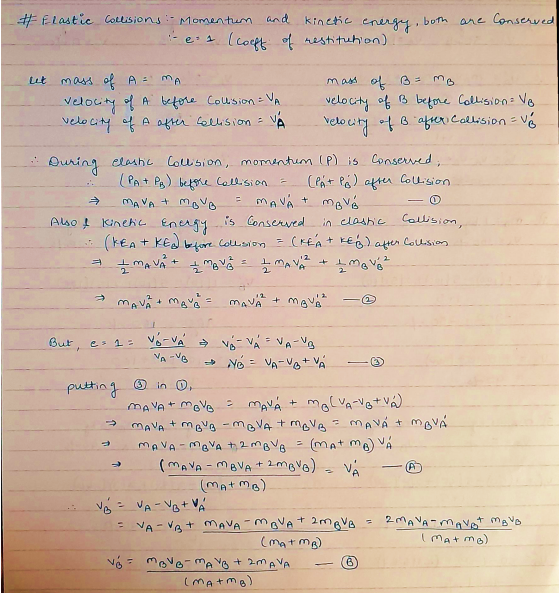 # Elastic Collisions :- Momentum and kinetic energy, both are Conserved
:- e = 1 (coeff of restitution)
let mass of A = mA        mass of B = mB
velocity of A before Collision = VA        velocity of B before Collision = VB
velocity of A after Collision = VA'        velocity of B after Collision = VB'
∴ During elastic Collision, momentum (P) is Conserved,
∴ (PA + PB) before Collision = (PA' + PB') after Collision
⇒ mAVA + mBVB = mAVA' + mBVB' — ①
Also, Kinetic Energy is Conserved in elastic Collision,
∴ (KEA + KEB) before Collision = (KEA' + KEB') after Collision
⇒ 1/2 mAVA² + 1/2 mBVB² = 1/2 mAVA'² + 1/2 mBVB'²
⇒ mAVA² + mBVB² = mAVA'² + mBVB'² — ②
But, e = 1 = (VB' - VA')/(VA - VB) ⇒ VB' - VA' = VA - VB
⇒ VB' = VA - VB + VA' — ③
putting ③ in ①,
mAVA + mBVB = mAVA' + mB(VA - VB + VA')
⇒ mAVA + mBVB - mBVA + mBVB = mAVA' + mBVA'
⇒ mAVA - mBVA + 2mBVB = (mA + mB) VA'
⇒ (mAVA - mBVA + 2mBVB)/(mA + mB) = VA' — Ⓐ
∴ VB' = VA - VB + VA'
= VA - VB + (mAVA - mBVA + 2mBVB)/(mA + mB) = (2mAVA - mAVB + mBVB)/(mA + mB)
VB' = (mBVB - mAVB + 2mAVA)/(mA + mB) — Ⓑ